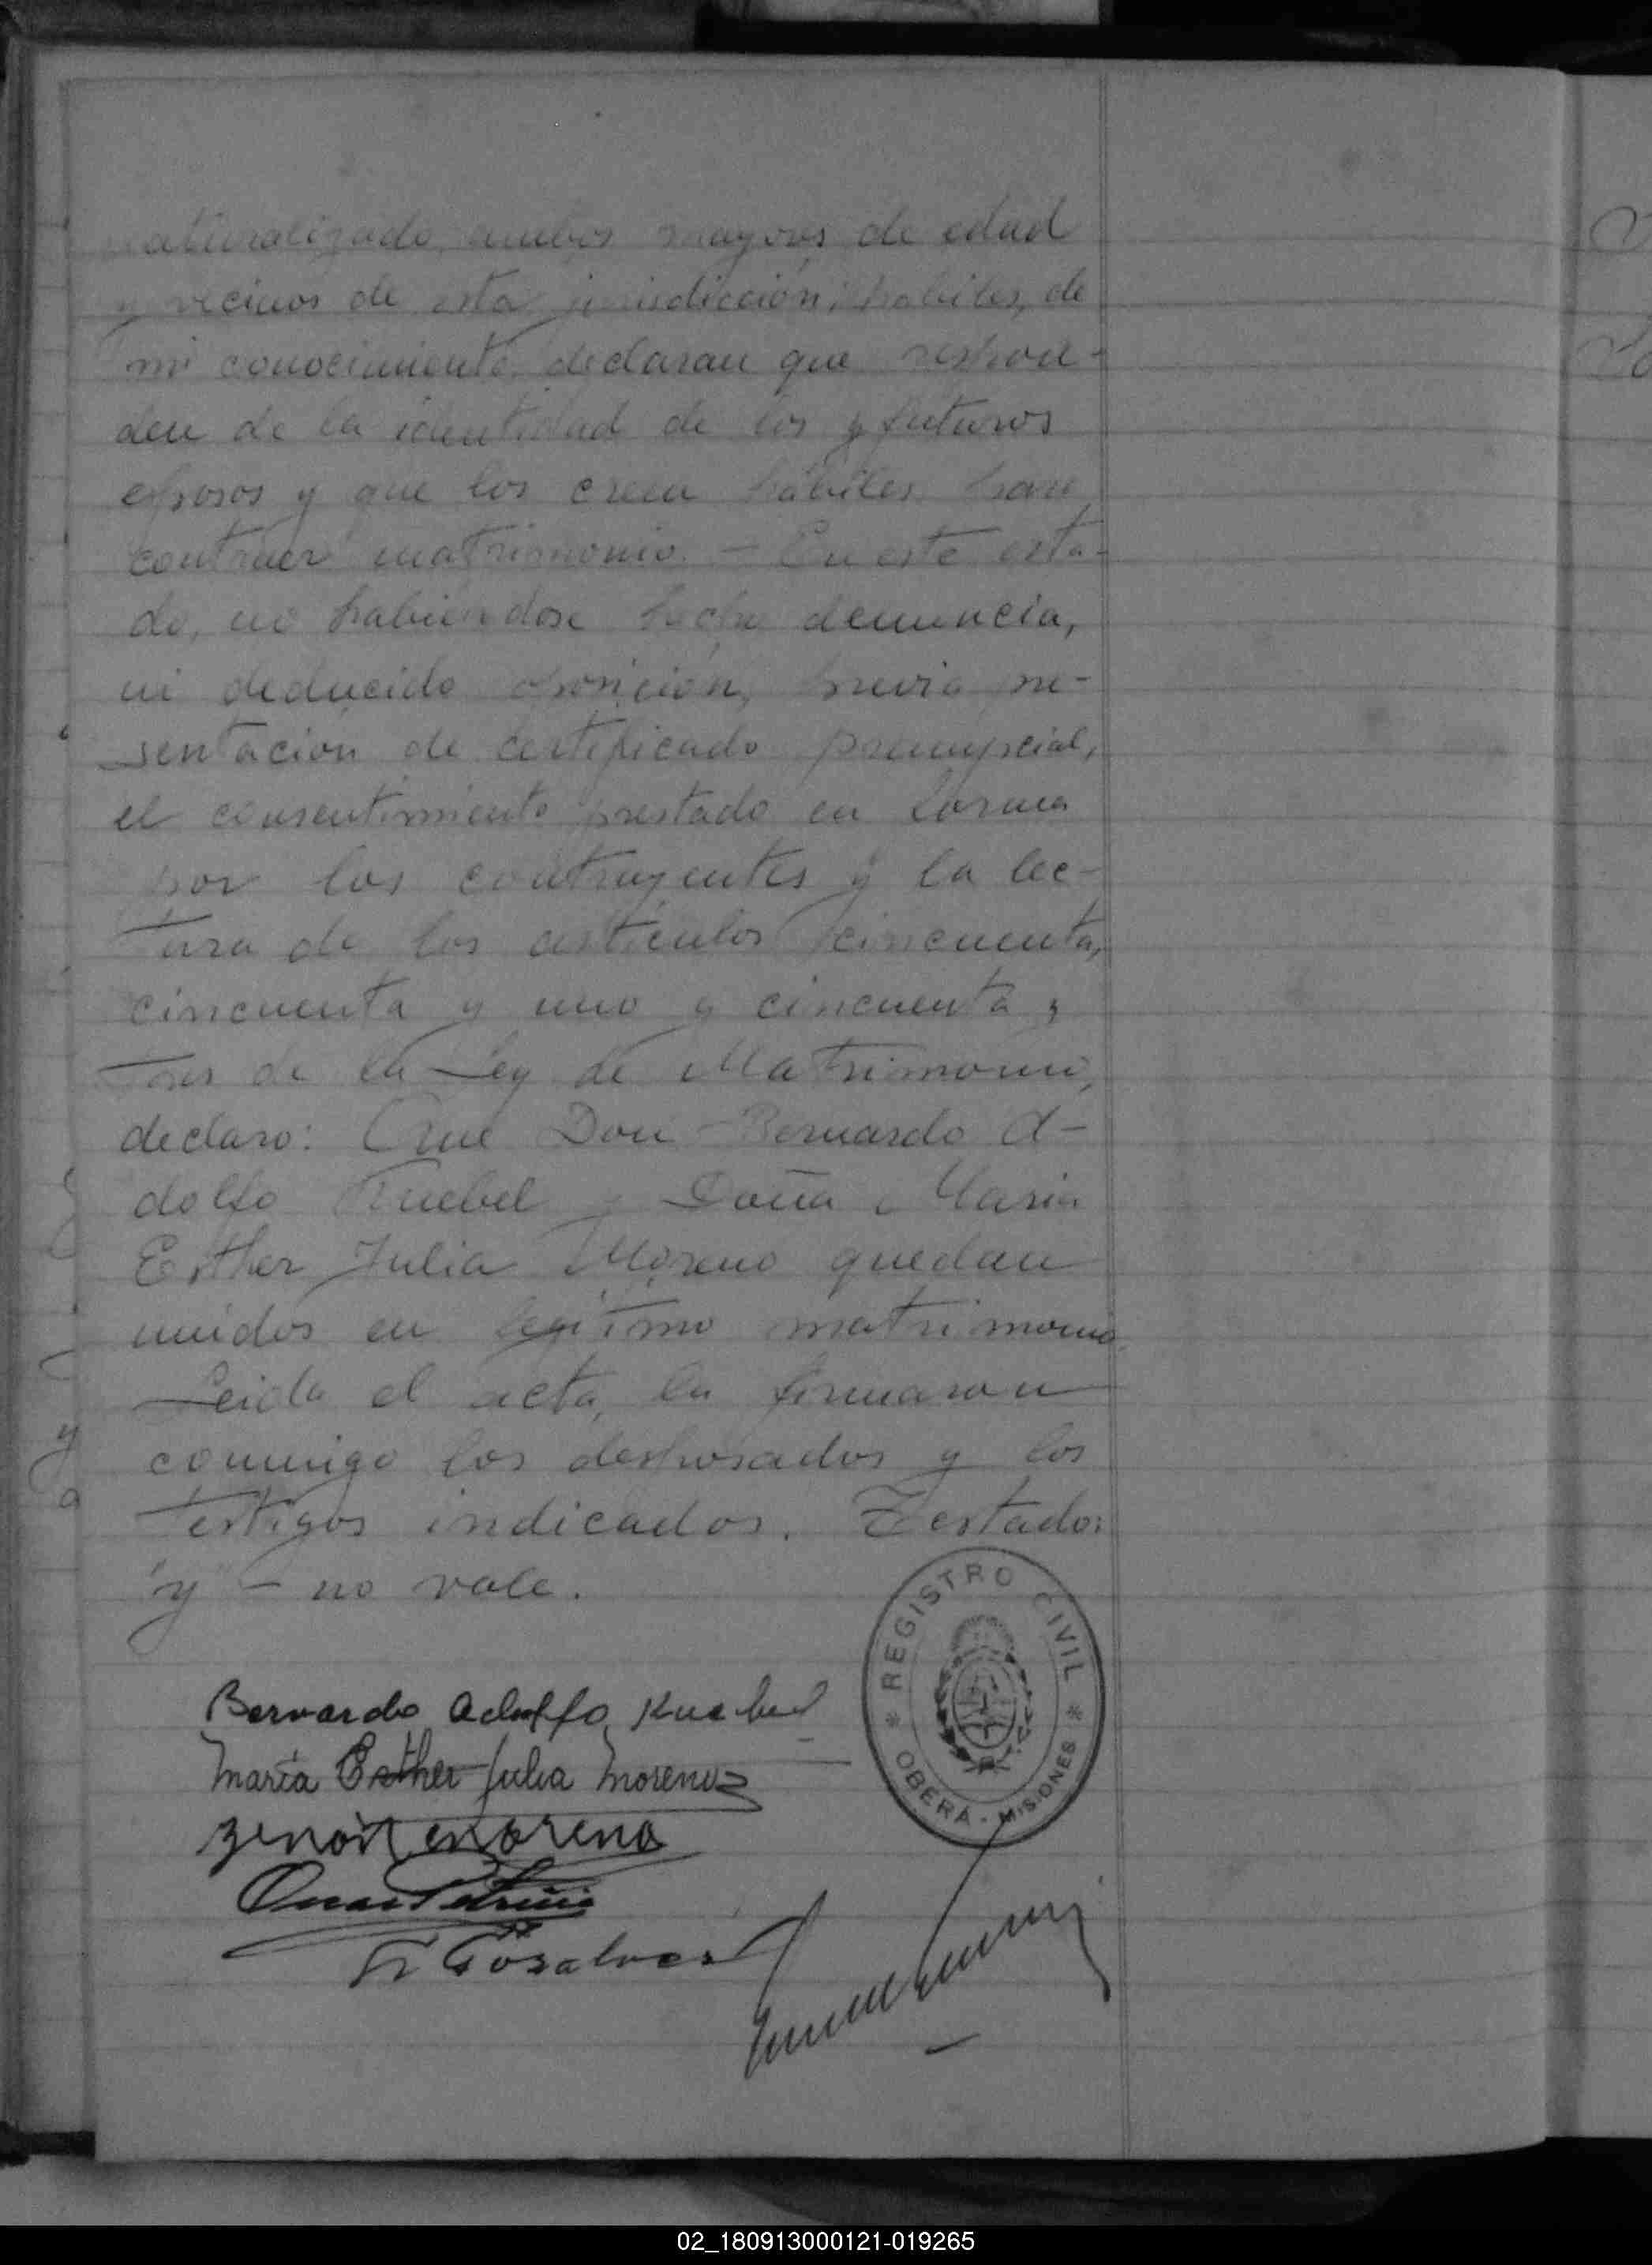 naturalizado, ambos mayores de edad
y vecinos de esta jurisdicción; habiles, de
mi conocimiento, declaran que respon-
den de la identidad de los y futuros
esposos y que los creen hábiles para
contraer matrimonio. - En este esta-
do, no habiendose hecho denuncia,
ni deducido oposición, previa pre-
sentación de certificado prenupcial,
el consentimiento prestado en forma
por los contrayentes y la lec-
tura de los articulos cincuenta,
cincuenta y uno y cincuenta y
tres de la Ley de Matrimonio,
declaro: Que Don Bernardo A-
dolfo Kuebel y Doña Maria
Esther Julia Moreno quedan
unidos en legitimo matrimonio.
Leida el acta, la firmaron
conmigo los desposados y los
testigos indicados. Testado:
"y" - no vale.
REGISTRO CIVIL
* OBERÁ - MISIONES *
Bernardo Adolfo Kuebel
María Esther Julia Moreno
Zenón Moreno
02_180913000121-019265